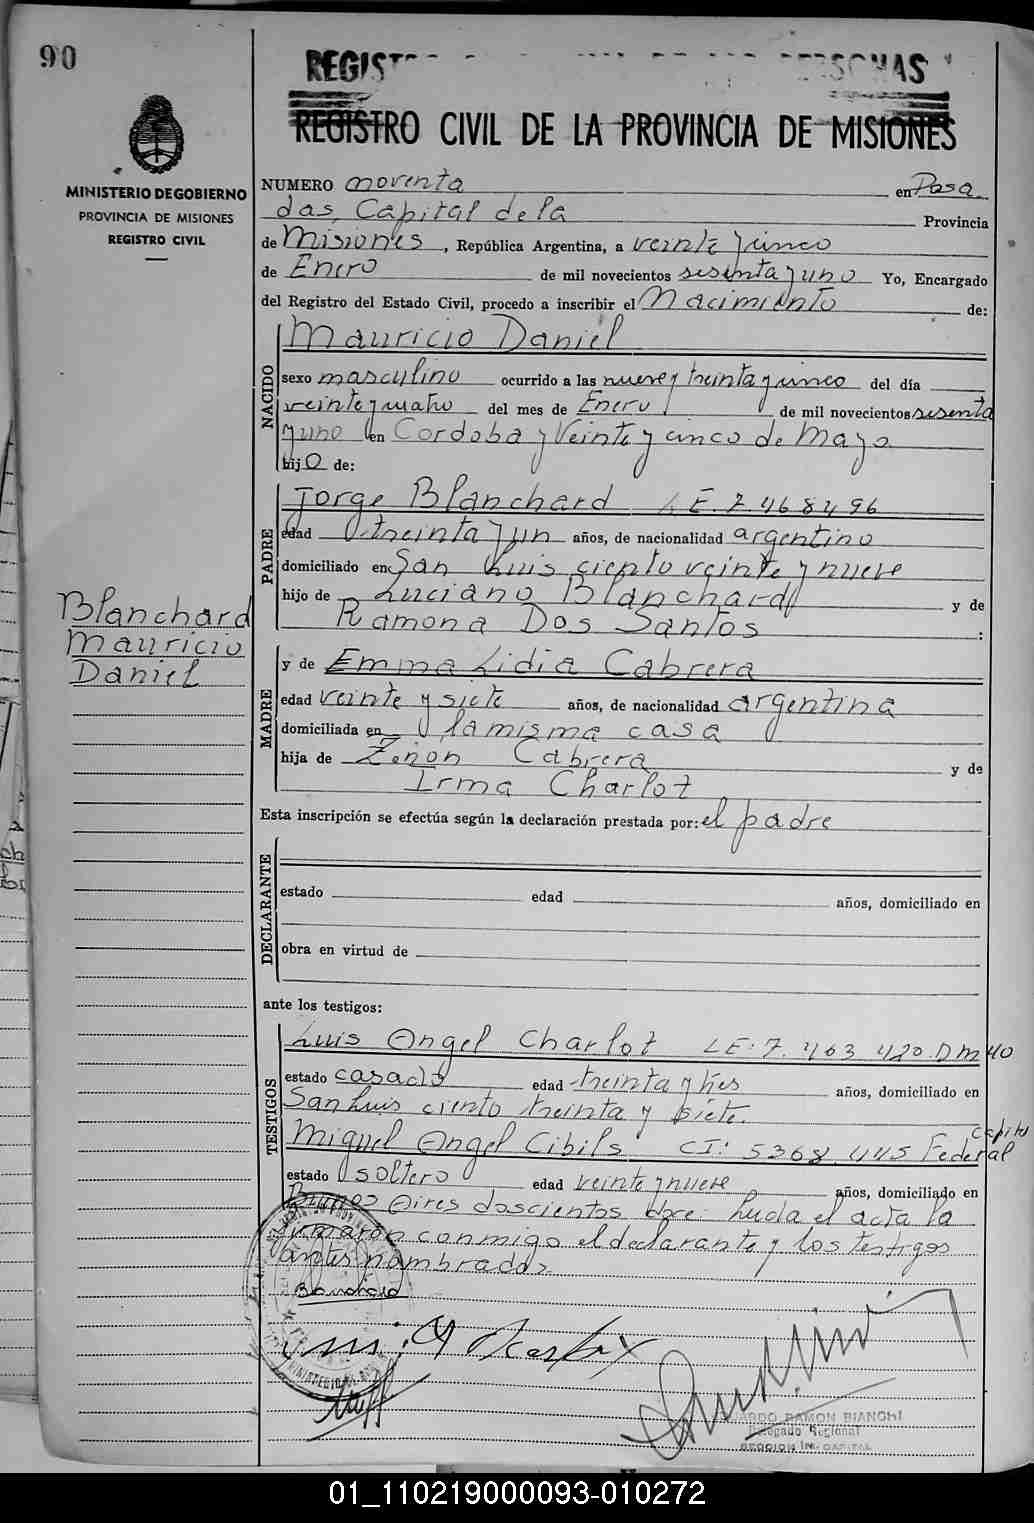 90
REGIST PERSONAS
REGISTRO CIVIL DE LA PROVINCIA DE MISIONES
MINISTERIO DE GOBIERNO
PROVINCIA DE MISIONES
REGISTRO CIVIL
NUMERO noventa en Posa
das, Capital de la Provincia
de Misiones, República Argentina, a veinte y cinco
de Enero de mil novecientos sesenta y uno Yo, Encargado
del Registro del Estado Civil, procedo a inscribir el Nacimiento de:
NACIDO
Mauricio Daniel
sexo masculino ocurrido a las nueve y treinta y cinco del día
veinte y cuatro del mes de Enero de mil novecientos sesenta
y uno en Cordoba y Veinte y cinco de Mayo
hijo de:
PADRE
Jorge Blanchard L E. 7.468496
edad treinta y un años, de nacionalidad argentino
domiciliado en San Luis ciento veinte y nueve
hijo de Luciano Blanchard y de
Ramona Dos Santos :
Blanchard
Mauricio
Daniel
MADRE
y de Emma Lidia Cabrera
edad veinte y siete años, de nacionalidad argentina
domiciliada en la misma casa
hija de Zenon Cabrera y de
Irma Charlot
Esta inscripción se efectúa según la declaración prestada por: el padre
DECLARANTE
estado edad años, domiciliado en
obra en virtud de
ante los testigos:
TESTIGOS
Luis Angel Charlot LE: 7.463420 D m 40
estado casado edad treinta y tres años, domiciliado en
San Luis ciento treinta y siete.
Miguel Angel Cibils CI: 5368445 Capital Federal
estado soltero edad veinte y nueve años, domiciliado en
Buenos Aires doscientos doce. Leida el acta la
firmaron conmigo el declarante y los testigos
antes nombrados.
Blanchard
RAMON BIANCHI
Delegado Regional
01_110219000093-010272